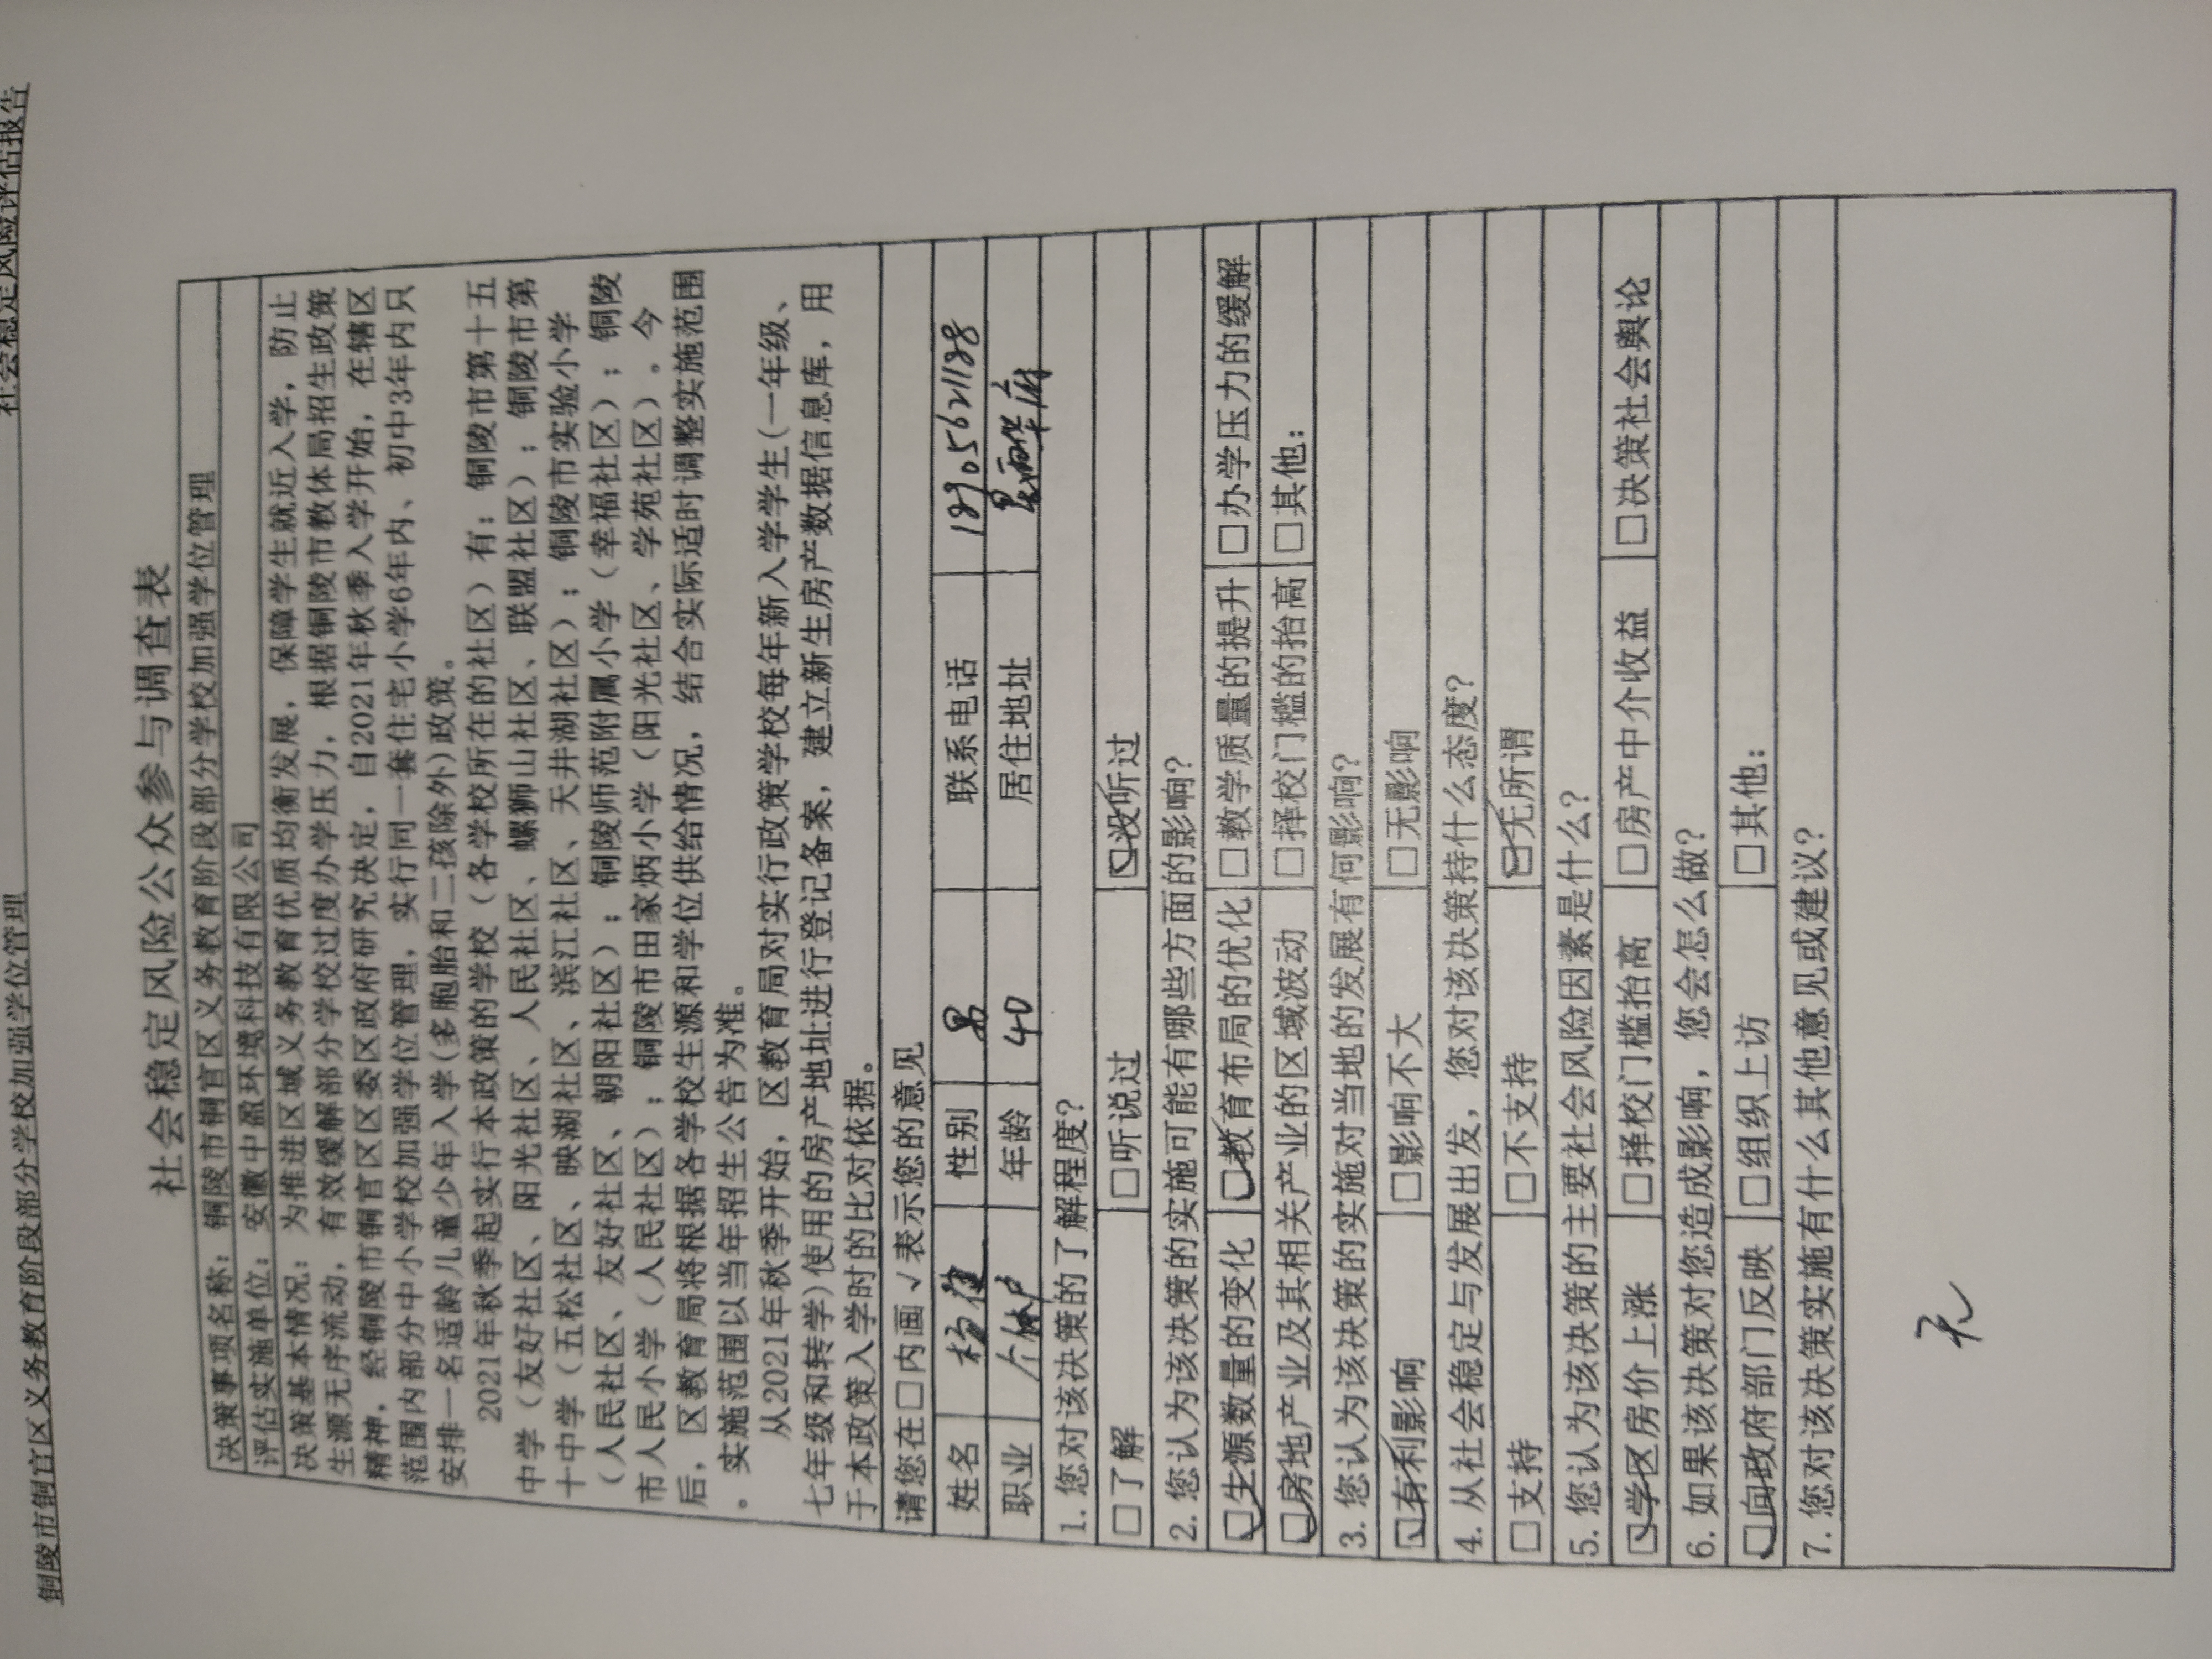 铜陵市铜官区义务教育阶段部分学校加强学位管理 社会稳定风险评估报告
社会稳定风险公众参与调查表
决策事项名称：铜陵市铜官区义务教育阶段部分学校加强学位管理
评估实施单位：安徽中盈环境科技有限公司
决策基本情况：为推进区域义务教育优质均衡发展，保障学生就近入学，防止
生源无序流动，有效缓解部分学校过度办学压力，根据铜陵市教体局招生政策
精神，经铜陵市铜官区区委区政府研究决定，自2021年秋季入学开始，在辖区
范围内部分中小学校加强学位管理，实行同一套住宅小学6年内、初中3年内只
安排一名适龄儿童少年入学(多胞胎和二孩除外)政策。
2021年秋季起实行本政策的学校（各学校所在的社区）有：铜陵市第十五
中学（友好社区、阳光社区、人民社区、螺狮山社区、联盟社区）；铜陵市第
十中学（五松社区、映湖社区、滨江社区、天井湖社区）；铜陵市实验小学
（人民社区、友好社区、朝阳社区）；铜陵师范附属小学（幸福社区）；铜陵
市人民小学（人民社区）；铜陵市田家炳小学（阳光社区、学苑社区）。今
后，区教育局将根据各学校生源和学位供给情况，结合实际适时调整实施范围
。实施范围以当年招生公告为准。
从2021年秋季开始，区教育局对实行政策学校每年新入学学生(一年级、
七年级和转学)使用的房产地址进行登记备案，建立新生房产数据信息库，用
于本政策入学时的比对依据。
请您在□内画√表示您的意见
姓名 杨 性别 男 联系电话 18905621188
职业 个体户 年龄 40 居住地址 华府
1.您对该决策的了解程度？
□了解 □听说过 ☑没听过
2.您认为该决策的实施可能有哪些方面的影响？
☑生源数量的变化 ☑教育布局的优化 □教学质量的提升 □办学压力的缓解
☑房地产业及其相关产业的区域波动 □择校门槛的抬高 □其他：
3.您认为该决策的实施对当地的发展有何影响？
☑有利影响 □影响不大 □无影响
4.从社会稳定与发展出发，您对该决策持什么态度？
□支持 □不支持 ☑无所谓
5.您认为该决策的主要社会风险因素是什么？
☑学区房价上涨 □择校门槛抬高 □房产中介收益 □决策社会舆论
6.如果该决策对您造成影响，您会怎么做？
☑向政府部门反映 □组织上访 □其他：
7.您对该决策实施有什么其他意见或建议？
无